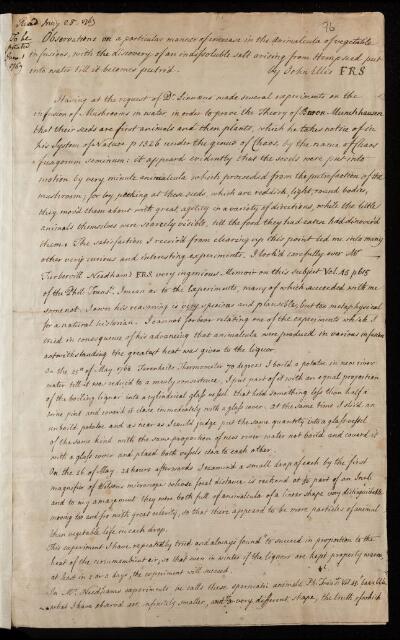 Read July 25. 1769
76
To be printed June 1 1769
Observations on a particular manner of increase in the Animalcula of vegetable
infusions, with the discovery of an indissoluble salt arising from Hempseed put
into water till it becomes putrid.
by John Ellis FRS
Having at the request of Dr. Linnæus made several experiments on the
infusion of Mushrooms in water, in order to prove the Theory of Baron Munchhausen
that their seeds are first animals and then plants, which he takes notice of in
his System of Nature p 1326 under the genus of Chaos, by the name of Chaos
fungorum seminum: it appeard evidently that the seeds were put into
motion by very minute animalcula which proceeded from the putrefaction of the
mushroom; for by pecking at these seeds, which are reddish, light, round bodies,
they mov'd them about with great agility in a variety of directions, while the little
animals themselves were scarcely visible, till the food they had eaten had discover'd
them. The satisfaction I receiv'd from clearing up this point led me into many
other very curious and interesting experiments. I look'd carefully over Mr
Turbervill Needhams FRS very ingenious Memoir on this subject Vol. 45 p 615
of the Phil. Trans: I mean as to the Experiments, many of which succeeded with me
some not. I own his reasoning is very specious and plausible, but too metaphysical
for a natural historian. I cannot forbear relating one of the experiments which I
tried in consequence of his advancing that animalcula were produced in various infusions
notwithstanding the greatest heat was given to the liquor.
On the 25th of May 1768 Farenheits Thermometer 70 degrees I boild a potatoe in new river
water till it was reduced to a mealy consistence. I put part of it with an equal proportion
of the boiling liquor into a cylindrical glass vessel that held something less than half a
wine pint and coverd it close immediately with a glass cover. at the same time I sliced an
unboild potatoe and as near as I could judge put the same quantity into a glass vessel
of the same kind with the same proportion of new river water not boild and coverd it
with a glass cover and placed both vessels close to each other.
On the 26 of May 24 hours afterwards I examind a small drop of each by the first
magnifier of Wilsons microscope whose focal distance is reckond at 1/50 part of an Inch
and to my amazement they were both full of animalcula of a linear shape very distinguishable
moving too and fro with great celerity, so that there appeard to be more particles of animal
than vegetable life in each drop.
This experiment I have repeatedly tried and always found to succeed in proportion to the
heat of the circumambient air, so that even in winter if the liquors are kept properly warm,
at least in 2 or 3 days, the experiment will succeed.
In Mr. Needhams experiments he calls these spermatic animals Ph. Trans. Vol 45
what I have observd are infinitely smaller, and of a very different shape, the truth of which